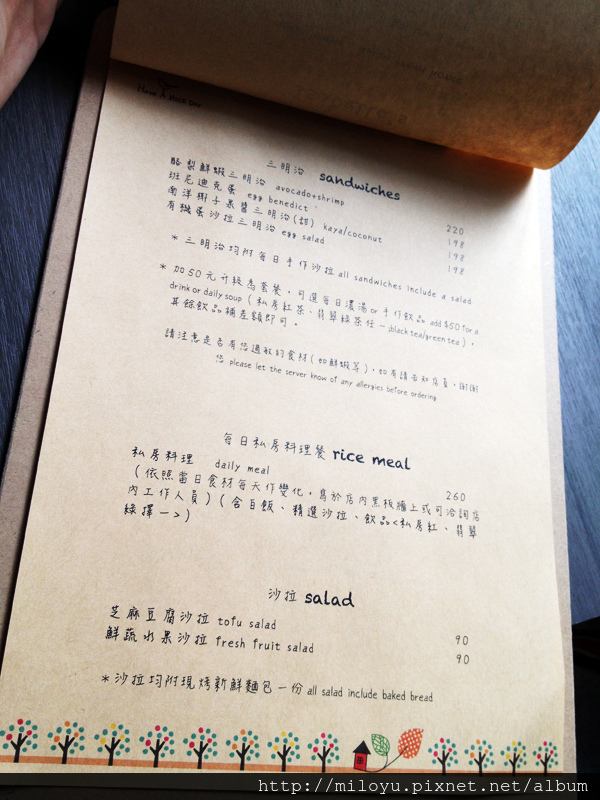 Have A Good Day
三明治 sandwiches
酪梨鮮蝦三明治 avocado+shrimp 220
班尼迪克蛋 egg benedict 198
南洋椰子果醬三明治(甜) kaya/coconut 198
有機蛋沙拉三明治 egg salad 198
＊三明治均附每日手作沙拉 all sandwiches include a salad
＊加50元升級為套餐，可選每日濃湯or手作飲品 add $50 for a
drink or daily soup (私房紅茶、翡翠綠茶任一:black tea/green tea)，
其餘飲品補差額即可。
請注意是否有您過敏的食材(如鮮蝦等)，如有請告知店員，謝謝
您 please let the server know of any allergies before ordering
每日私房料理餐 rice meal
私房料理 daily meal 260
(依照當日食材每天作變化，寫於店內黑板牆上或可洽詢店
內工作人員)(含白飯、精選沙拉、飲品<私房紅、翡翠
綠擇一>)
沙拉 salad
芝麻豆腐沙拉 tofu salad 90
鮮蔬水果沙拉 fresh fruit salad 90
＊沙拉均附現烤新鮮麵包一份 all salad include baked bread
http://miloyu.pixnet.net/album